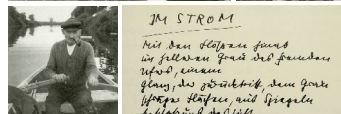 IM STROM
Mit den Flößen hinab
im helleren Grau des fremden
Ufers, einem
Glanz, der zurücktritt, dem Grau
Flächen, aus Spiegeln